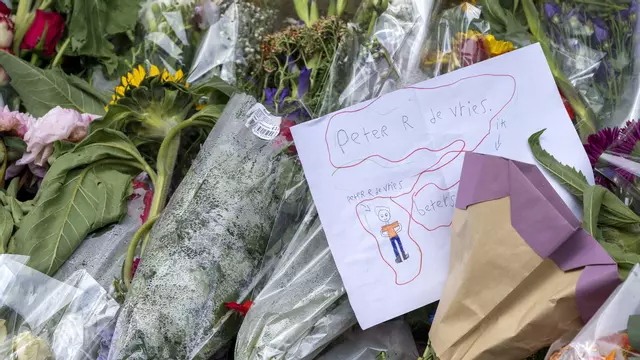 Peter R de vries.
ik
Peter R de vries
beterS